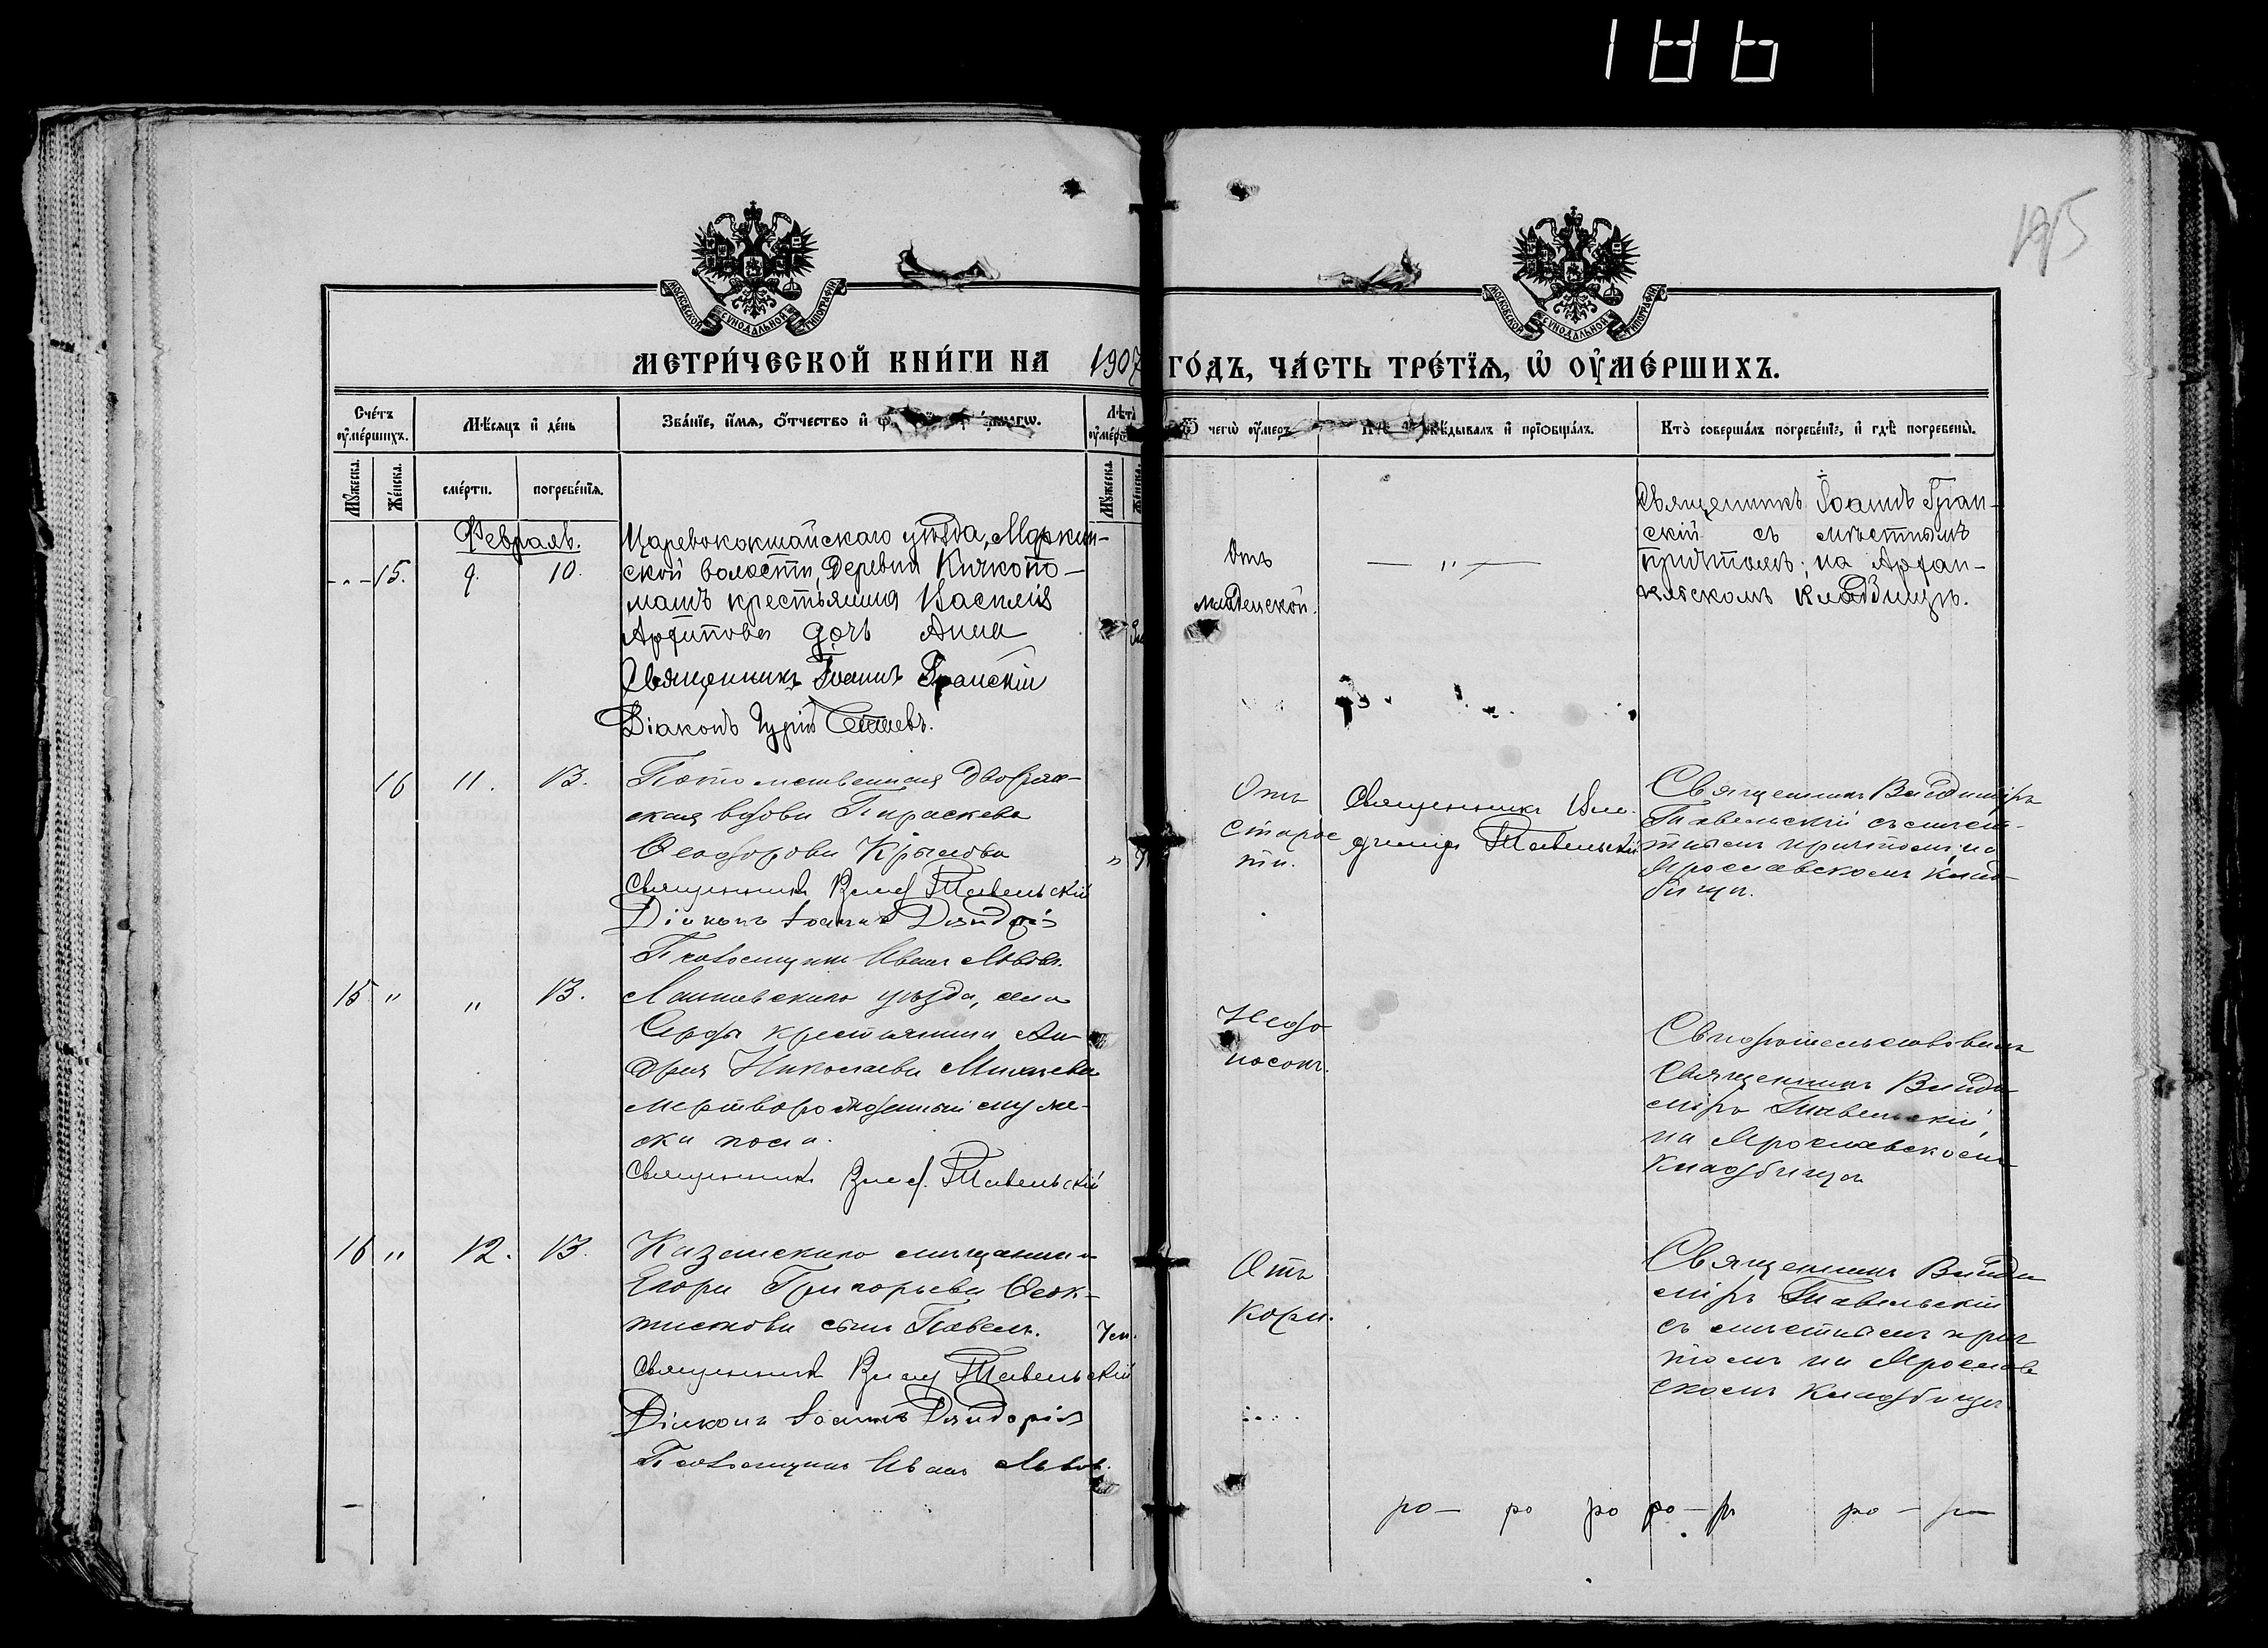 186
195
МОСКОВСКОЙ СѴНОДАЛЬНОЙ ТИПОГРАФІИ
МОСКОВСКОЙ СѴНОДАЛЬНОЙ ТИПОГРАФІИ
МЕТРИ́ЧЕСКОЙ КНИ́ГИ НА 1907 ГО́ДЪ, ЧА́СТЬ ТРЕ́ТЇѦ, Ѡ҆ ОУ҆МЕ́РШИХЪ.
Сче́тъ оу҆ме́ршихъ.
Мѣ́сяцъ и҆ де́нь
Зва́нїе, и҆́мѧ, ѻ҆́тчество и҆
Лѣ́та оу҆ме́рш
Ѿ чегѡ̀ оу҆́меръ
и҆сповѣ́дывалъ и҆ прїѡбща́лъ.
Кто̀ соверша́лъ погребе́нїе, и҆ гдѣ̀ погребены̀.
Мꙋ́жеска.
Же́нска.
сме́рти.
погребе́нїѧ.
Мꙋ́жеска.
Же́нска.
Февраль.
15.
9.
10.
Царевококшайскаго уѣзда, Моркин-
ской волости, деревни Кичкопо-
машъ крестьянина Василія
Архипова дочь Анна
Священникъ Іоаннъ Гранскій
Діаконъ Гурій
Отъ
младенской.
— " —
Священникъ Іоаннъ Гран-
скій съ мѣстнымъ
причтомъ; на Архан-
гельскомъ кладбищѣ.
16
11.
13.
Потомственная дворян-
ская вдова Параскева
Ѳеодорова Крылова
Священникъ Влад Павельскій
Діаконъ Іоаннъ
Псаломщикъ Иванъ Львовъ.
"
Отъ
старос
ти.
Священникъ Вла-
димиръ Павельскій
Священникъ Владиміръ
Павельскій съ мѣст-
нымъ причтомъ, на
Ярославскомъ клад-
бищѣ.
15
"
"
13.
Лаишевскаго уѣзда, села
крестьянина Ан-
дрея Николаева
мертворожденный муже-
ска пола.
Священникъ Влад. Павельскій
Недо
носокъ.
Священникъ Влади
міръ Павельскій,
на Ярославскомъ
кладбищѣ
16
"
12.
13.
Казанскаго мѣщанина
Егора Григорьева Ѳеок-
тистова сынъ Павелъ.
7 м.
Священникъ Влад Павельскій
Діаконъ Іоаннъ
Псаломщикъ Иванъ Львовъ.
Отъ
кори.
Священникъ Влади
міръ Павельскій
съ мѣстнымъ прич
томъ на Ярослав
скомъ кладбищѣ
ро — ро ро ро — ро ро — ро